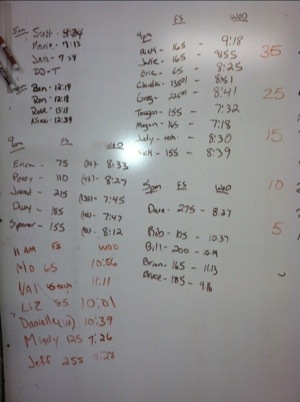 5am
Scott - 
Marie - 7:13
DD - T
6am
Ben - 12:19
Ron - 12:18
Rose -
Nikki - 12:39
9am FS WOD
Erica - 75 8:33
Petey - 110 (45) - 8:27
Jarod - 215 (135) - 7:45
Duey - 185 7:47
Spencer - 155 8:12
11 AM FS WOD
Mo 65 10:56
VAl 45 tech 11:11
Liz 85 10:01
Danielle 10:39
Mindy 125 7:26
Jeff 255
4pm FS WOD
Rich - 165 - 9:18
Julie - 165 - 8:55
Eric - 65 - 8:25
Claudia - - 8:51
Greg - - 8:41
Teagan - 155 - 7:32
Megan - 165 - 7:18
Judy - tech - 8:30
Nick - 155 - 8:39
5pm FS WOD
Dave - 275 - 8:27
Rob - 105 - 10:37
Bill - 200 - 10:19
Brian - 165 - 11:13
Bruce - 185 - 9:16
35
25
15
10
5